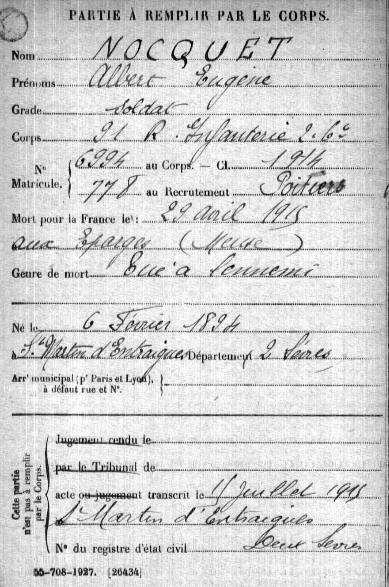 PARTIE À REMPLIR PAR LE CORPS.
Nom NOCQUET
Prénoms Albert Eugène
Grade Soldat
Corps 91 R. Infanterie 2e Cie
N° Matricule. 6994 au Corps. — Cl. 1914
778 au Recrutement Poitiers
Mort pour la France le 29 avril 1915
aux Eparges (Meuse)
Genre de mort Tué à l'ennemi
Né le 6 Février 1894
à St Martin d'Entraigues Département 2 Sèvres
Arrt municipal (pr Paris et Lyon),
à défaut rue et N°.
Cette partie n'est pas à remplir par le Corps.
Jugement rendu le
par le Tribunal de
acte ou jugement transcrit le 15 Juillet 1915
St Martin d'Entraigues
N° du registre d'état civil Deux Sevres
55-708-1927. [26434]